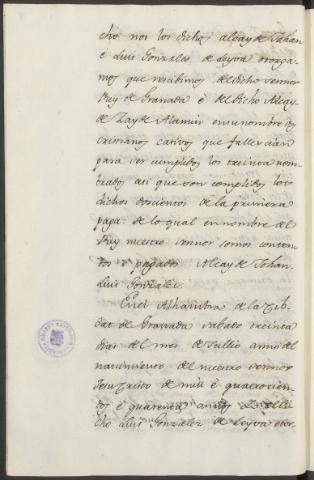 cho nos los dichos Alcayde Johan
é Luis Gonzales de Leyva otorga-
mos que recibimos del dicho Sennor
Rey de Granada é del dicho Alcay-
de Zayde Alamin en su nombre dos
cristianos cativos que fallecian
para ser cumplidos los treinta nom-
brados asi que son complidos los
dichos doscientos de la primera
paga: de lo qual en nombre del
Rey nuestro sennor somos conten-
tos é pagados Alcayde Johan
Luis Gonzalez
En el Alhambra de la Cib-
dat de Granada sabado treinta
dias del mes de Jullio anno del
nascimiento del nuestro sennor
Jesucristo de mill é quatrocien-
tos é quarenta annos
cho Luis Gonzalez de Leyva otor-